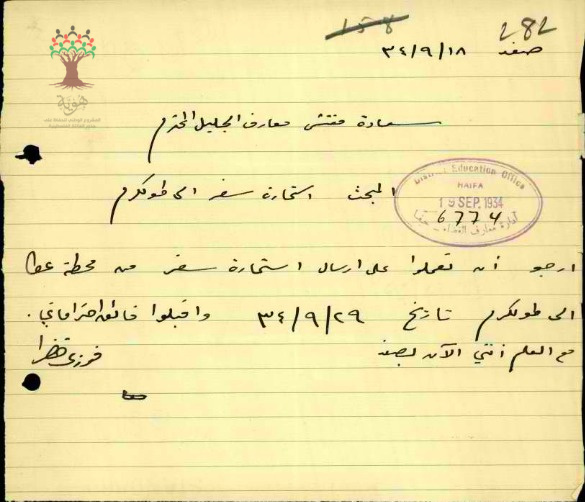 158
282
صفد ٣٤/٩/١٨
سعادة مفتش معارف الجليل المحترم
المبحث استمارة سفر الى طولكرم
District Education Office
HAIFA
19 SEP. 1934
6774
ارجو أن تعملوا على ارسال استمارة سفر من محطة عكا
الى طولكرم تاريخ ٣٤/٩/٢٩ واقبلوا فائق احتراماتي.
مع العلم أنني الآن بصفد
فوزي
هوية